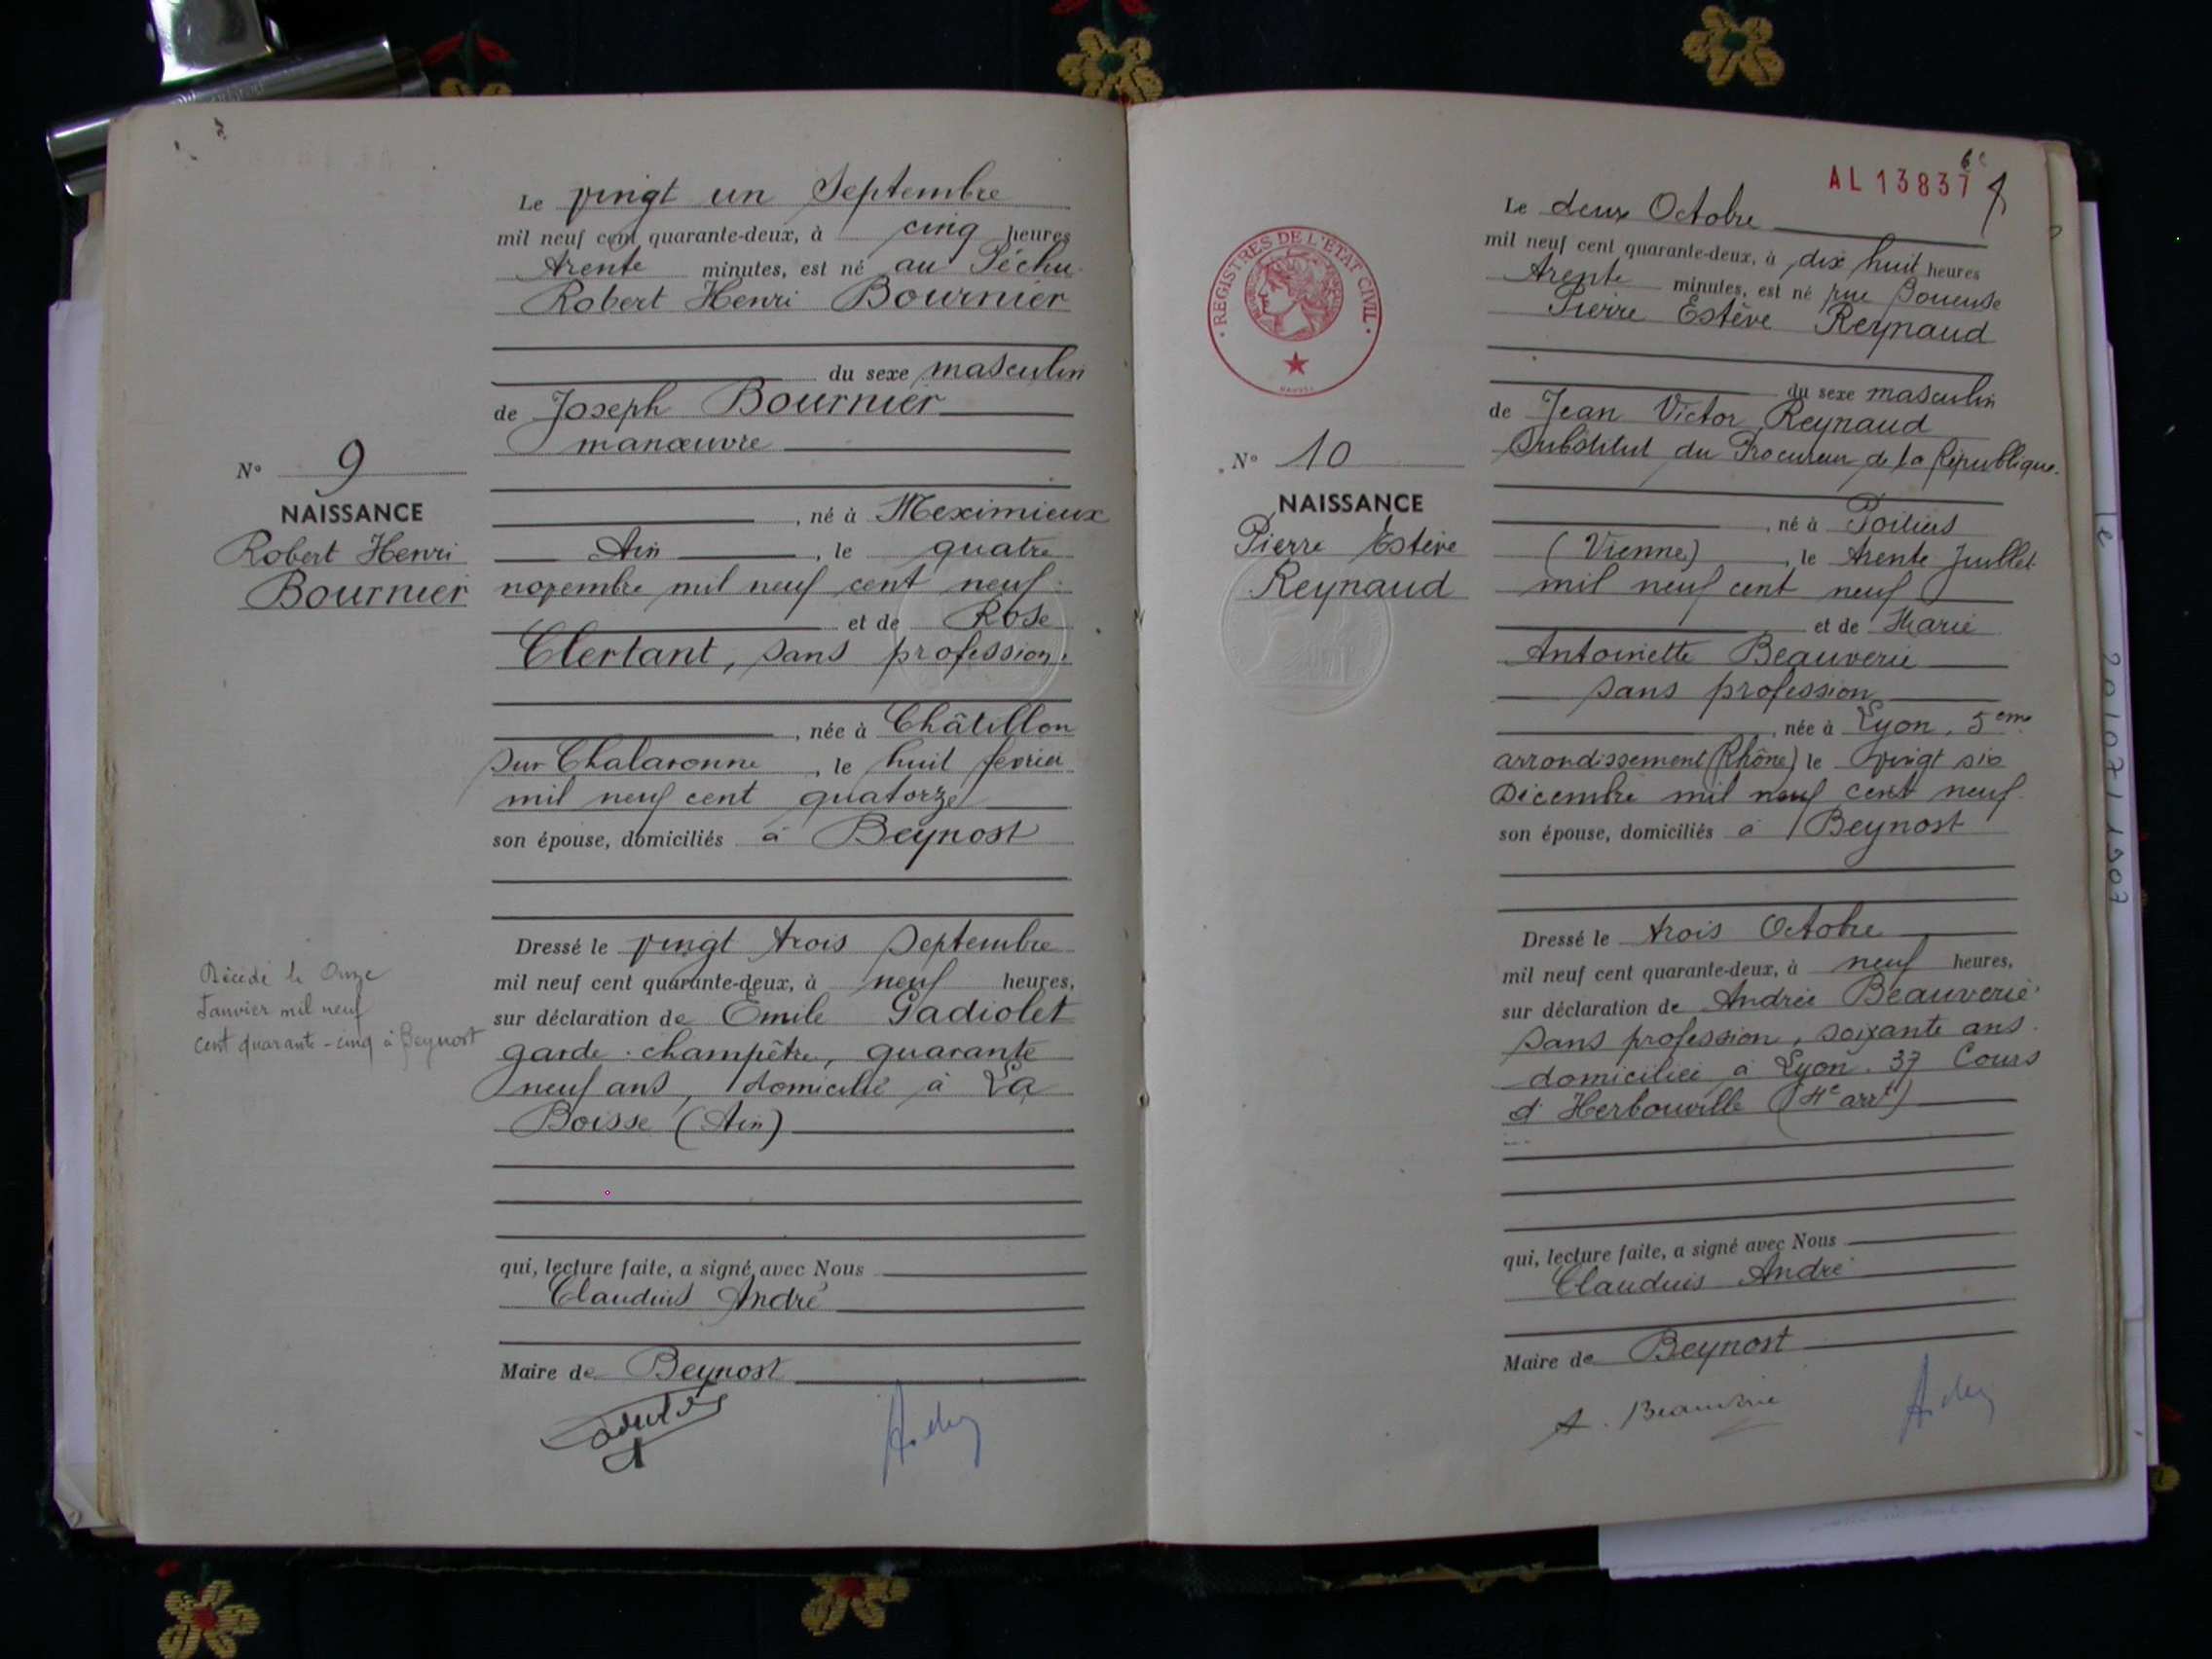 Le vingt un Septembre
mil neuf cent quarante-deux, à cinq heures
trente minutes, est né au Péchu
Robert Henri Bournier
du sexe masculin
de Joseph Bournier
manœuvre
, né à Meximieux
Ain, le quatre
novembre mil neuf cent neuf
et de Rose
Clertant, sans profession
, née à Châtillon
sur Chalaronne, le huit février
mil neuf cent quatorze
son épouse, domiciliés à Beynost
Dressé le vingt trois Septembre
mil neuf cent quarante-deux, à neuf heures,
sur déclaration de Emile Gadiolet
garde-champêtre, quarante
neuf ans, domicilié à La
Boisse (Ain)
qui, lecture faite, a signé avec Nous
Claudius André
Maire de Beynost
N° 9
NAISSANCE
Robert Henri
Bournier
Décédé le Onze
Janvier mil neuf
cent quarante-cinq à Beynost
AL 13837
REGISTRES DE L'ÉTAT CIVIL
Le deux Octobre
mil neuf cent quarante-deux, à dix huit heures
trente minutes, est né rue Boueuse
Pierre Estève Reynaud
du sexe masculin
de Jean Victor Reynaud
Substitut du Procureur de la République
, né à Poitiers
(Vienne), le trente Juillet
mil neuf cent neuf
et de Marie
Antoinette Beauverie
sans profession
, née à Lyon, 5eme
arrondissement (Rhône) le vingt six
Décembre mil neuf cent neuf
son épouse, domiciliés à Beynost
Dressé le trois Octobre
mil neuf cent quarante-deux, à neuf heures,
sur déclaration de Andrée Beauverie
sans profession, soixante ans
domiciliée à Lyon. 37 Cours
d'Herbouville (4e arrt)
qui, lecture faite, a signé avec Nous
Claudius André
Maire de Beynost
A. Beauverie
N° 10
NAISSANCE
Pierre Estève
Reynaud